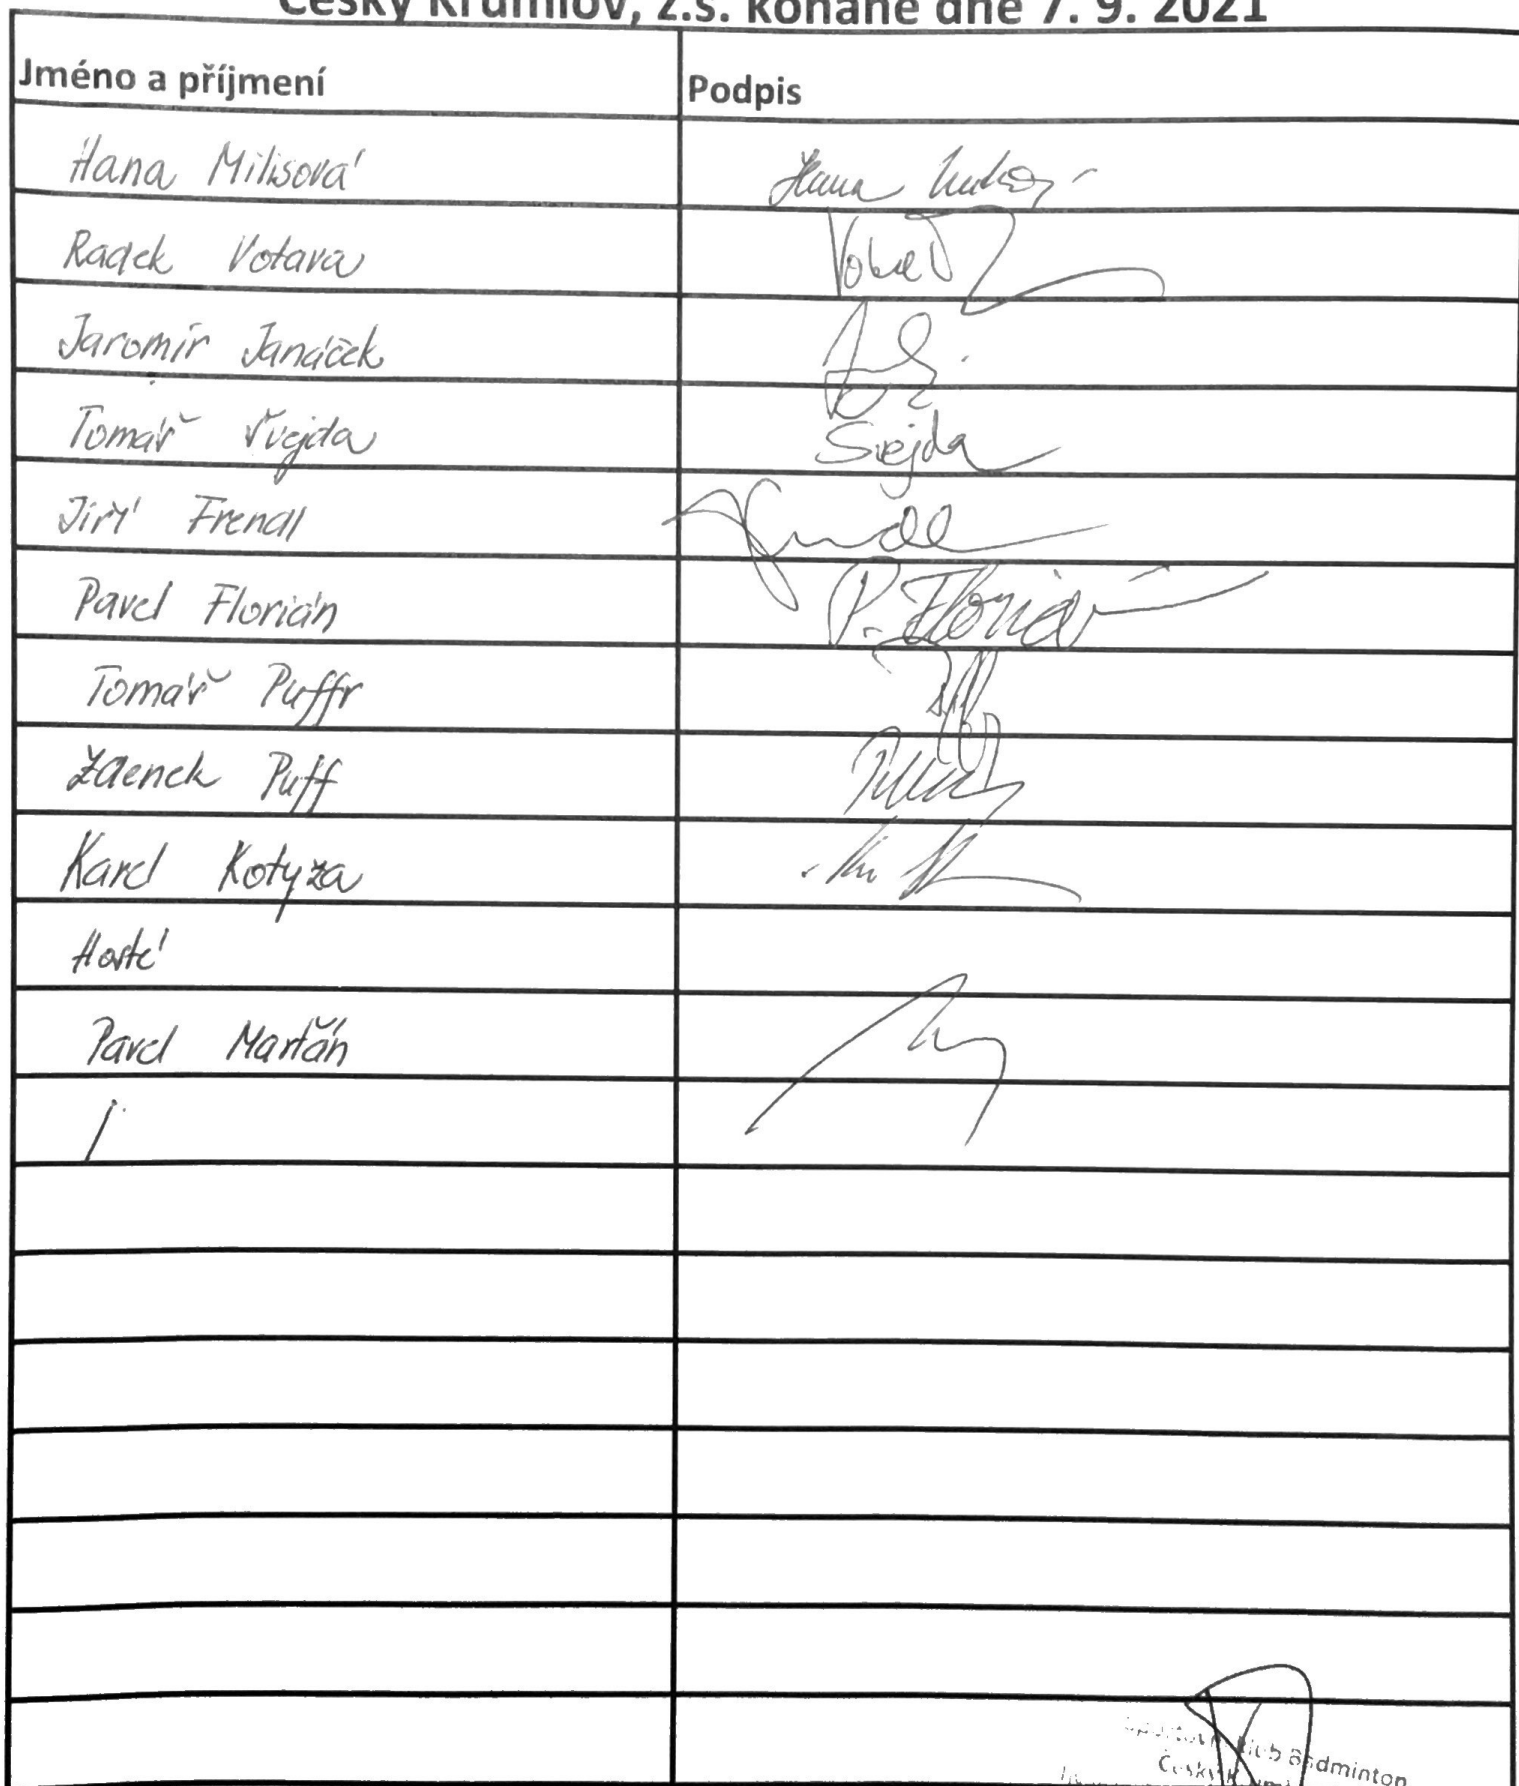 Český Krumlov, z.s. konané dne 7. 9. 2021
Jméno a příjmení Podpis
Hana Milisová Hana
Radek Votava
Jaromír Janáček
Tomáš Švejda Svejda
Jiří Frendl
Pavel Florián P. Florián
Tomáš Puffr
Zdenek Puff
Karel Kotyza
Hosté
Pavel Marťán
Sportovní klub Badminton
Český